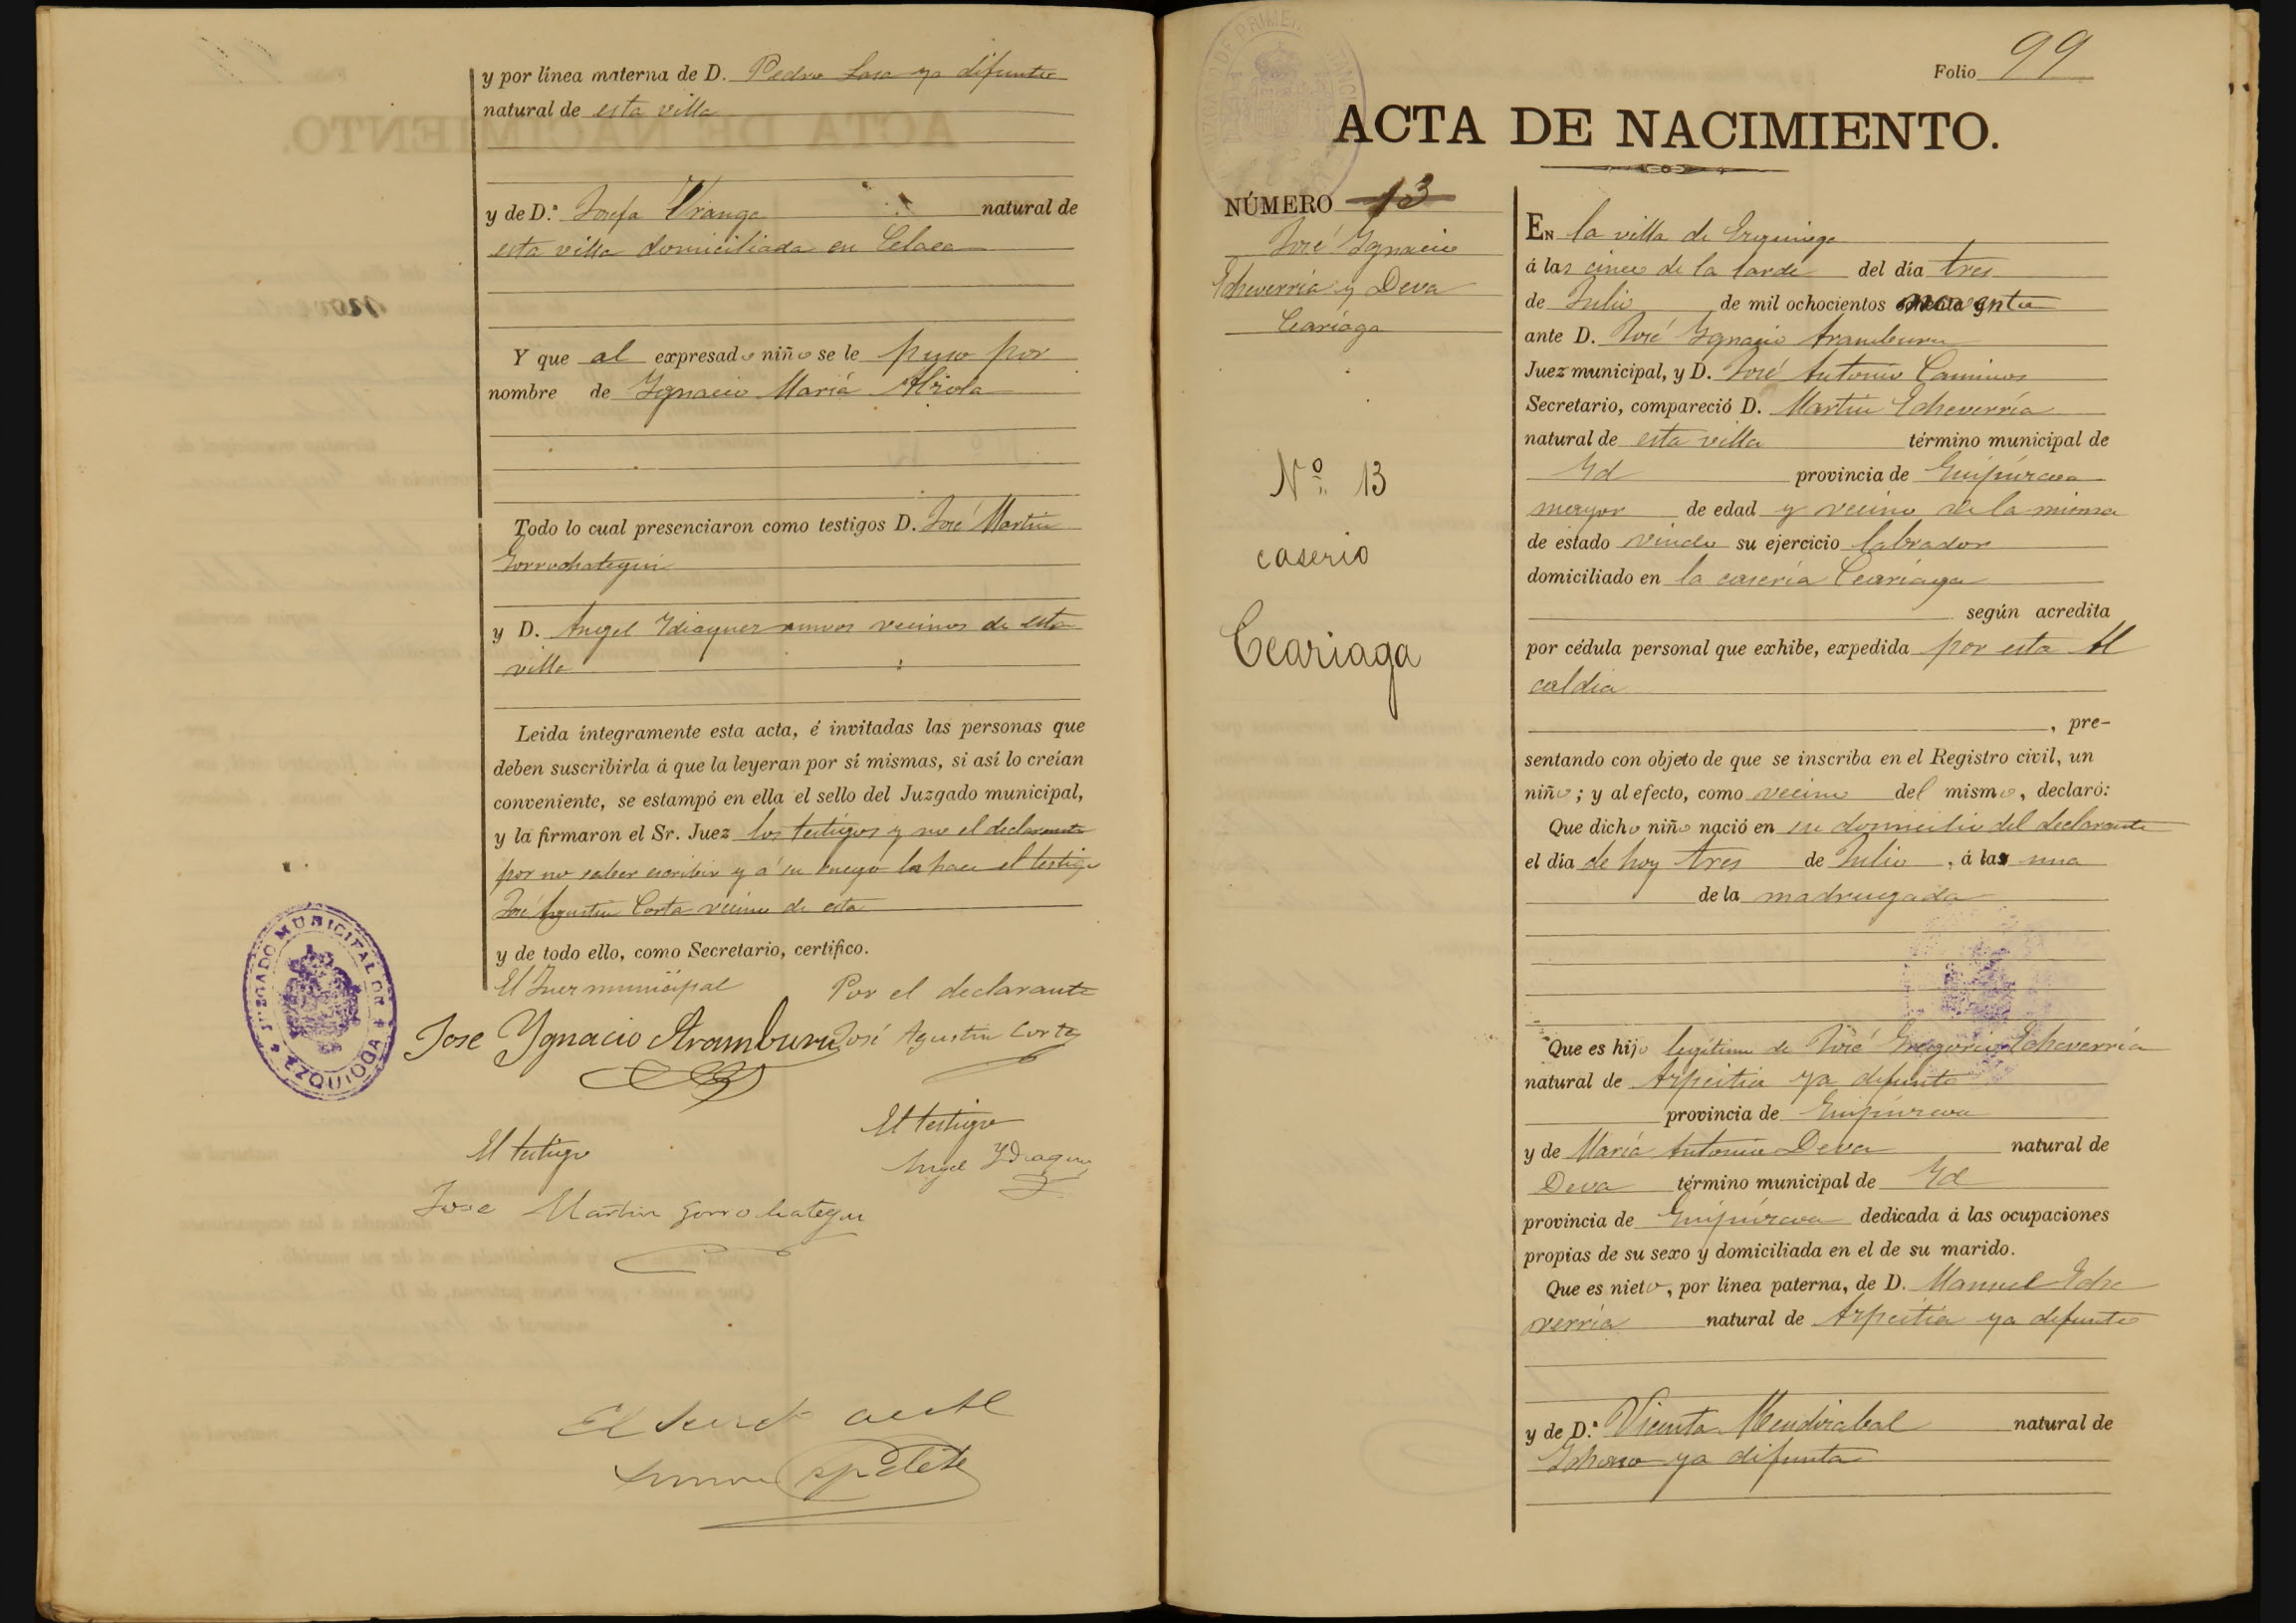 y por línea materna de D. Pedro Lasa ya difunto
natural de esta villa
y de D.ª Josefa Uranga natural de
esta villa domiciliada en Celaea
Y que al expresado niño se le puso por
nombre de Ygnacio María Alzola
Todo lo cual presenciaron como testigos D. José Martin
Gorrochategui
y D. Angel Ydiaquez vecinos de esta
villa
Leida íntegramente esta acta, é invitadas las personas que
deben suscribirla á que la leyeran por sí mismas, si así lo creían
conveniente, se estampó en ella el sello del Juzgado municipal,
y la firmaron el Sr. Juez los testigos y no el declarante
por no saber escribir y á su ruego lo hace el testigo
José Agustin Corta vecino de esta
y de todo ello, como Secretario, certifico.
El Juez municipal Por el declarante
JUZGADO MUNICIPAL DE EZQUIOGA
Jose Ygnacio Aramburu José Agustin Corta
El testigo
El testigo
Angel Ydiaquez
Jose Martin Gorrochategui
El
Folio 99
ACTA DE NACIMIENTO.
NÚMERO 13
José Ygnacio
Echeverría y Deva
Ceariaga
Nº 13
caserio
Ceariaga
EN la villa de Ezquioga
á las cinco de la tarde del día tres
de Julio de mil ochocientos noventa
ante D. José Ygnacio Aramburu
Juez municipal, y D. José Antonio Caminos
Secretario, compareció D. Martin Echeverría
natural de esta villa término municipal de
Yd provincia de Guipúzcoa
mayor de edad y vecino de la misma
de estado viudo su ejercicio labrador
domiciliado en la casería Ceariaga
según acredita
por cédula personal que exhibe, expedida por esta Al
caldia
, pre-
sentando con objeto de que se inscriba en el Registro civil, un
niño; y al efecto, como vecino del mismo, declaró:
Que dicho niño nació en su domicilio del declarante
el día de hoy tres de Julio, á las una
de la madrugada
Que es hijo legitimo de José Gregorio Echeverría
natural de Azpeitia ya difunto
provincia de Guipúzcoa
y de María Antonia Deva natural de
Deva término municipal de Yd
provincia de Guipúzcoa dedicada á las ocupaciones
propias de su sexo y domiciliada en el de su marido.
Que es nieto, por línea paterna, de D. Manuel Eche
verría natural de Azpeitia ya difunto
y de D.ª Vicenta Mendizabal natural de
ya difunta